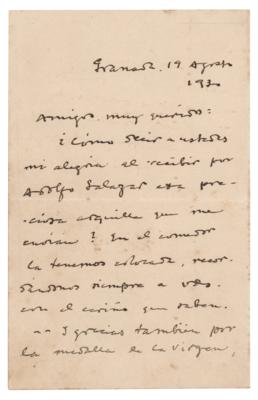 Granada, 19 Agosto
1930
Amigos muy queridos:
¿Cómo decir a ustedes
mi alegria al recibir por
Adolfo Salazar esa pre-
ciosa arquilla que me
envian? En el comedor
la tenemos colocada, recor-
dándonos siempre a Vds.
con el cariño que saben.
-- Y gracias también por
la medalla de la Virgen,